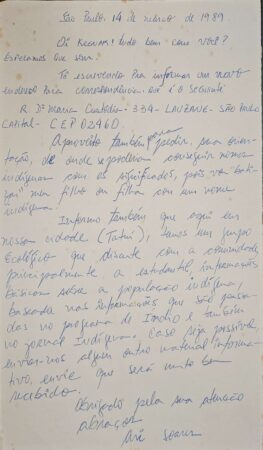 São Paulo, 14 de março de 1989.
Oi tudo bem com você?
Esperamos que sim.
Te escrevendo pra informar um novo
endereço pra correspondência, ai é o seguinte
R. Dª Maria Custódia - 334 - LAUZANE - SÃO PAULO
CAPITAL - CEP 02460.
Aproveito também para pedir, sua orien-
tação, de onde se poderia conseguir nomes
indígenas com os significados, pois vou bati-
zar meu filho ou filha com um nome
indígena.
Informo também que aqui em
nossa cidade (Tatuí), temos um grupo
Ecológico que discute com a comunidade
principalmente a estudantil, informações
básicas sobre a população indígena,
baseada nas informações que são passa-
das no programa de Índio e também
no jornal Indígena. Caso seja possível
enviar-nos algum outro material informa-
tivo, envie que será muito bem
recebido.
Obrigado pela sua atenção
abraços
Ari Soares